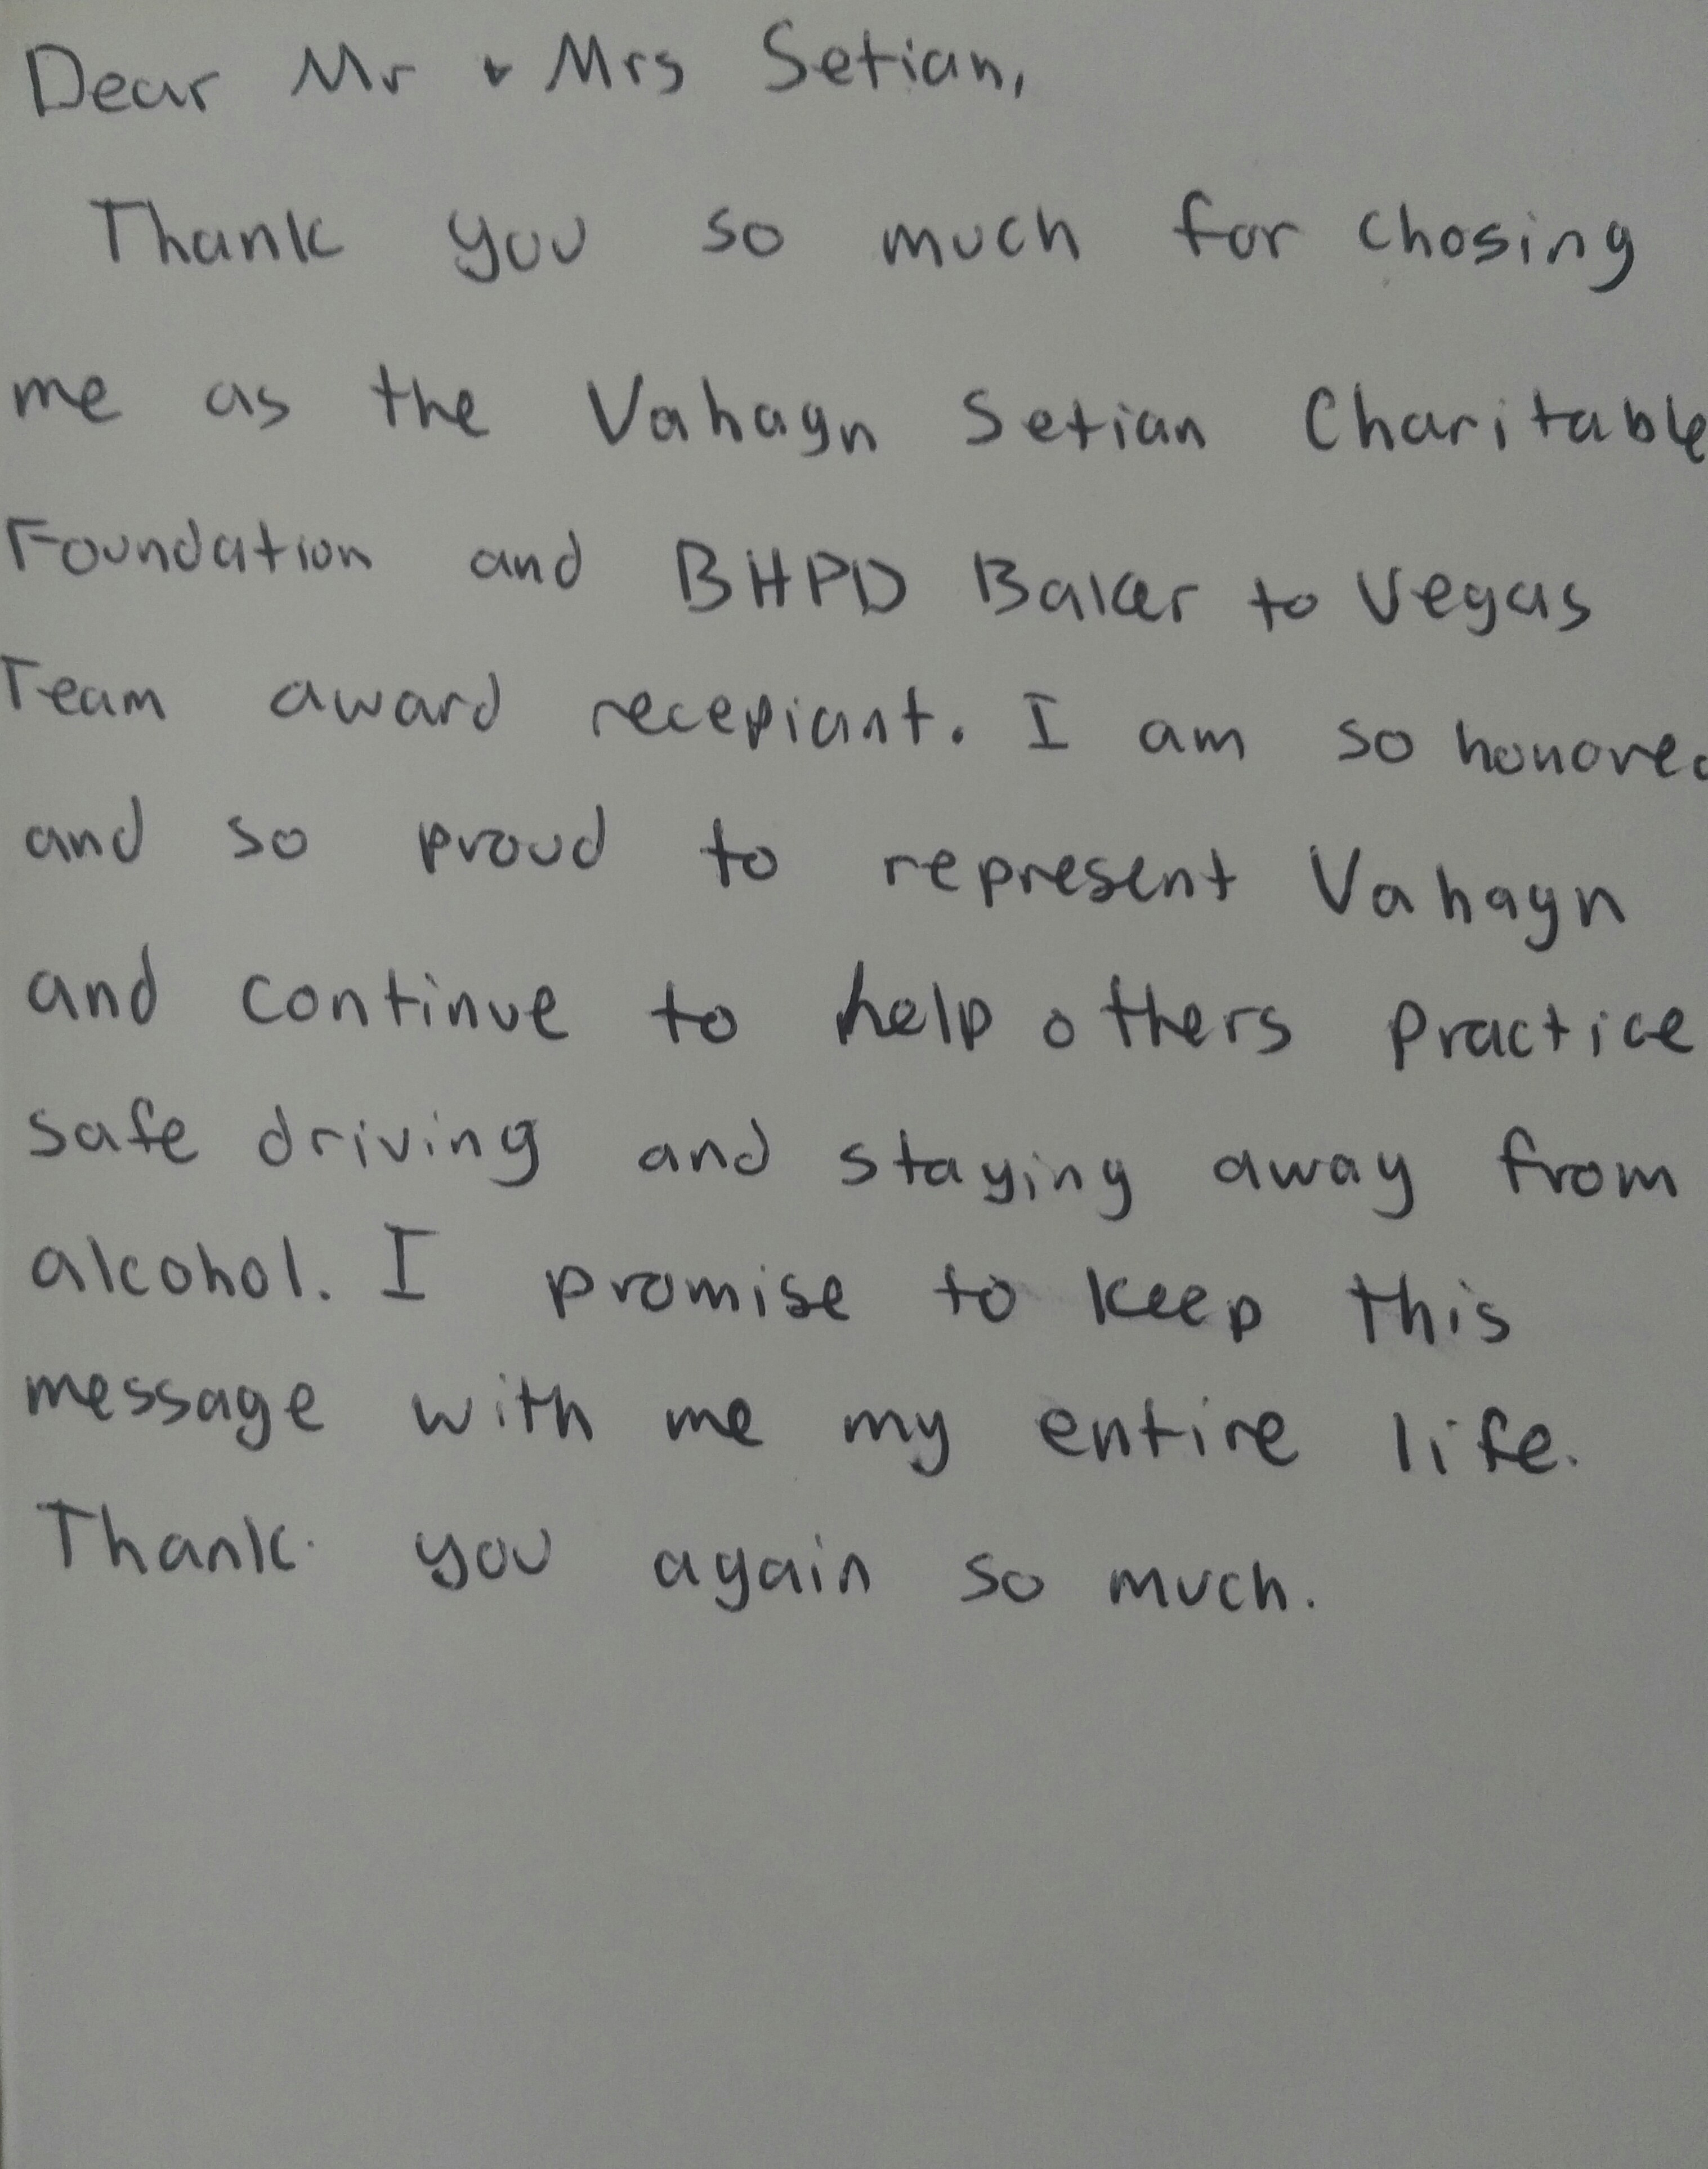 Dear Mr & Mrs Setian,
Thank you so much for chosing
me as the Vahagn Setian Charitable
Foundation and BHPD Baker to Vegas
Team award recepiant. I am so honored
and so proud to represent Vahagn
and continue to help others practice
safe driving and staying away from
alcohol. I promise to keep this
message with me my entire life.
Thank you again so much.